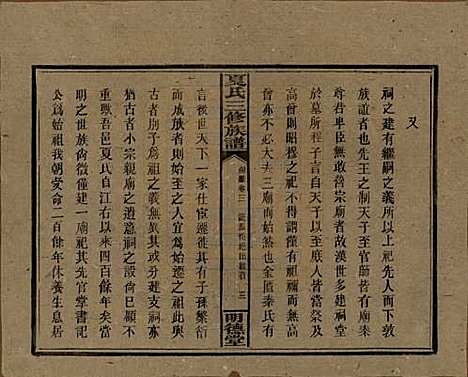 又
祠之建有繼嗣之義所以上祀先人而下敦
族誼者也先王之制天子至官師皆有廟秦
尊君卑臣無敢營宗廟者故漢世多建祠堂
於墓所程子曰自天子以至於庶人皆當祭及
高曾則昭穆之祀不得謂僅有祖禰而無
曾高不必大夫三廟而始然也金匱秦氏有
夏氏三修族譜
明德堂
言後世天下一家仕宦遷徙其有子孫繁衍
而成族者則始至之人宜為始遷之祖此與
古者別子為祖相合蓋不禘不祫不立壇墠
猶古者小宗親廟之遺意祠之立也可不
重歟吾邑夏氏自江右以來四百餘年矣當
明之世族尚微僅建一廟祀其先官堂書記
公為始祖我朝受命二百餘年休養生息居